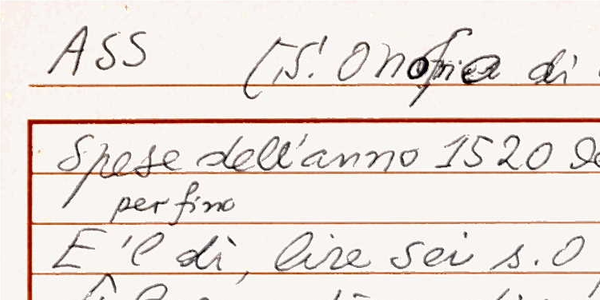 ASS (S. Onofrio di
Spese dell'anno 1520
per fino
E'l dì, lire sei s. 0